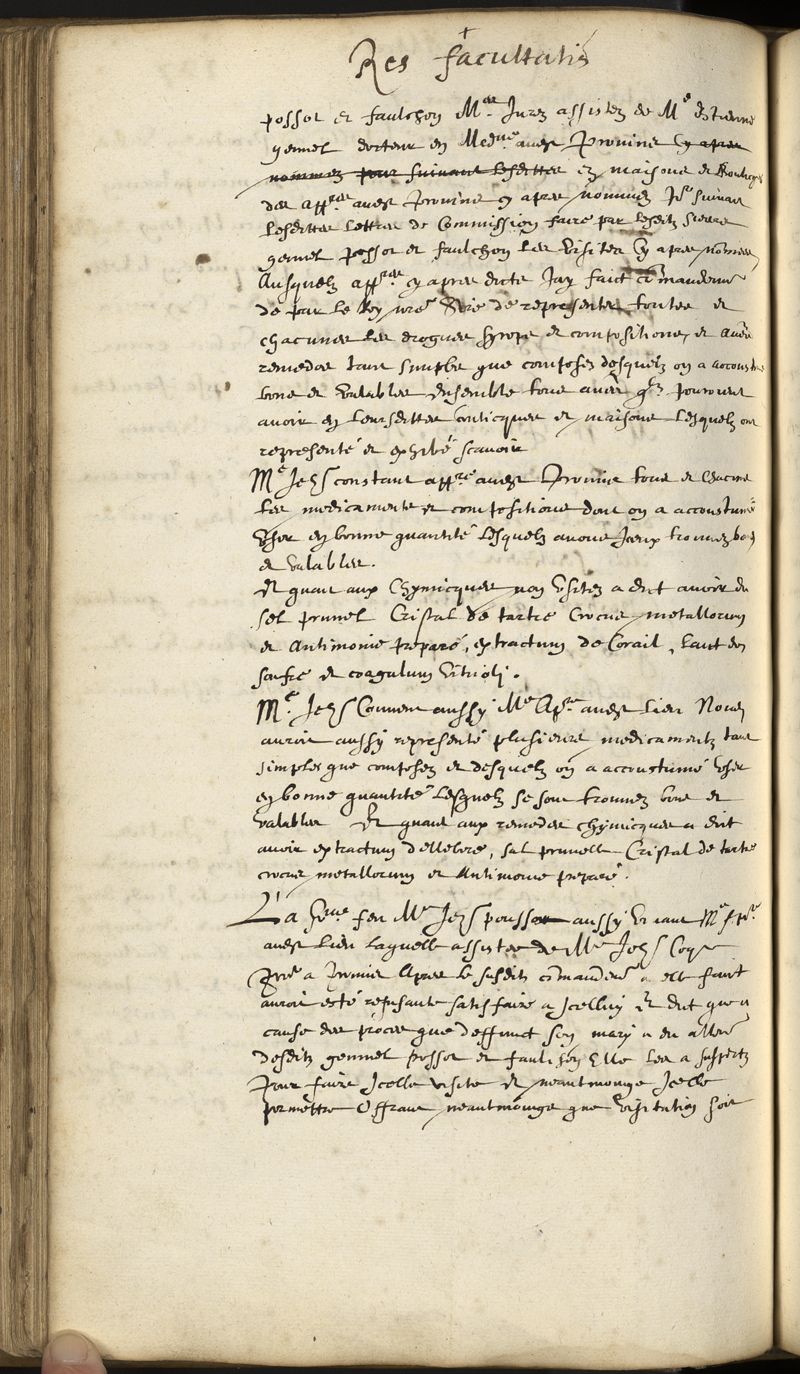 Res facultatis
possot et faulchon Mes Jurez assistez de Me Estienne
gennel docteur en Medne audit Provins cy apres
nommez pour suivant lesdittes es maisons et boutiques
des appres audit Provins cy apres nommez pr suivant
lesdittes lettres de Commission faire par lesditz sieurs
gennel possot et faulchon les visites cy apres nommees
Ausquelz appres cy apres dictz Jay faict commandement
de par le Roy nre Sire de representer touttes et
chacunes les drogues syrops et compositions et aues
remedes tant simples que composez desquelz on a accoustu
bons et valables Ensemble tous aues qlz pourroient
avoir en leursdittes bouticques et maisons Lesquelz ont
representé et exhibé scavoir
Me Jehan constant appre audit Provins tous et chacuns
les medicaments et compositions dont on a accoustumé
User en bonne quantité Lesquelz avons Iceux trouvez bons
et valables.
Et quant aux Chymicques non Usitez a dict avoir du
sel prunel Cristal de tartre Crocus metallorum
et Antimonie preparé, extractum de Corail, laict de
soufre et coagulum vitrioli.
Me Jehan aussy Me Apre audit lieu Nous
auroit aussy representé plusieurs medicamentz tant
simples que composez et desquelz on a accoustumé User
en bonne quantité Lesquelz se sont trouvez bons et
valables Et quant aux remedes chymicques a dict
avoir extractum dellebore, sal prunelle Cristal de tartre
crocus metallorum et Antimoine preparé.
La feu Me Jehan aussy vivant Me Apre
audit lieu laquelle assistee de Me Jehan
Provins Apres le susdit commandement a elle faict
auroit esté refusante satisfaire a Icelluy Et dict que a
cause des proces que deffunct son mary a eu
desditz gennel possot et faulchon Elle les a suspectz
Pour faire Icelle visite Et neantmoings Icelle
permettre Offrant neantmoings que visitation soit